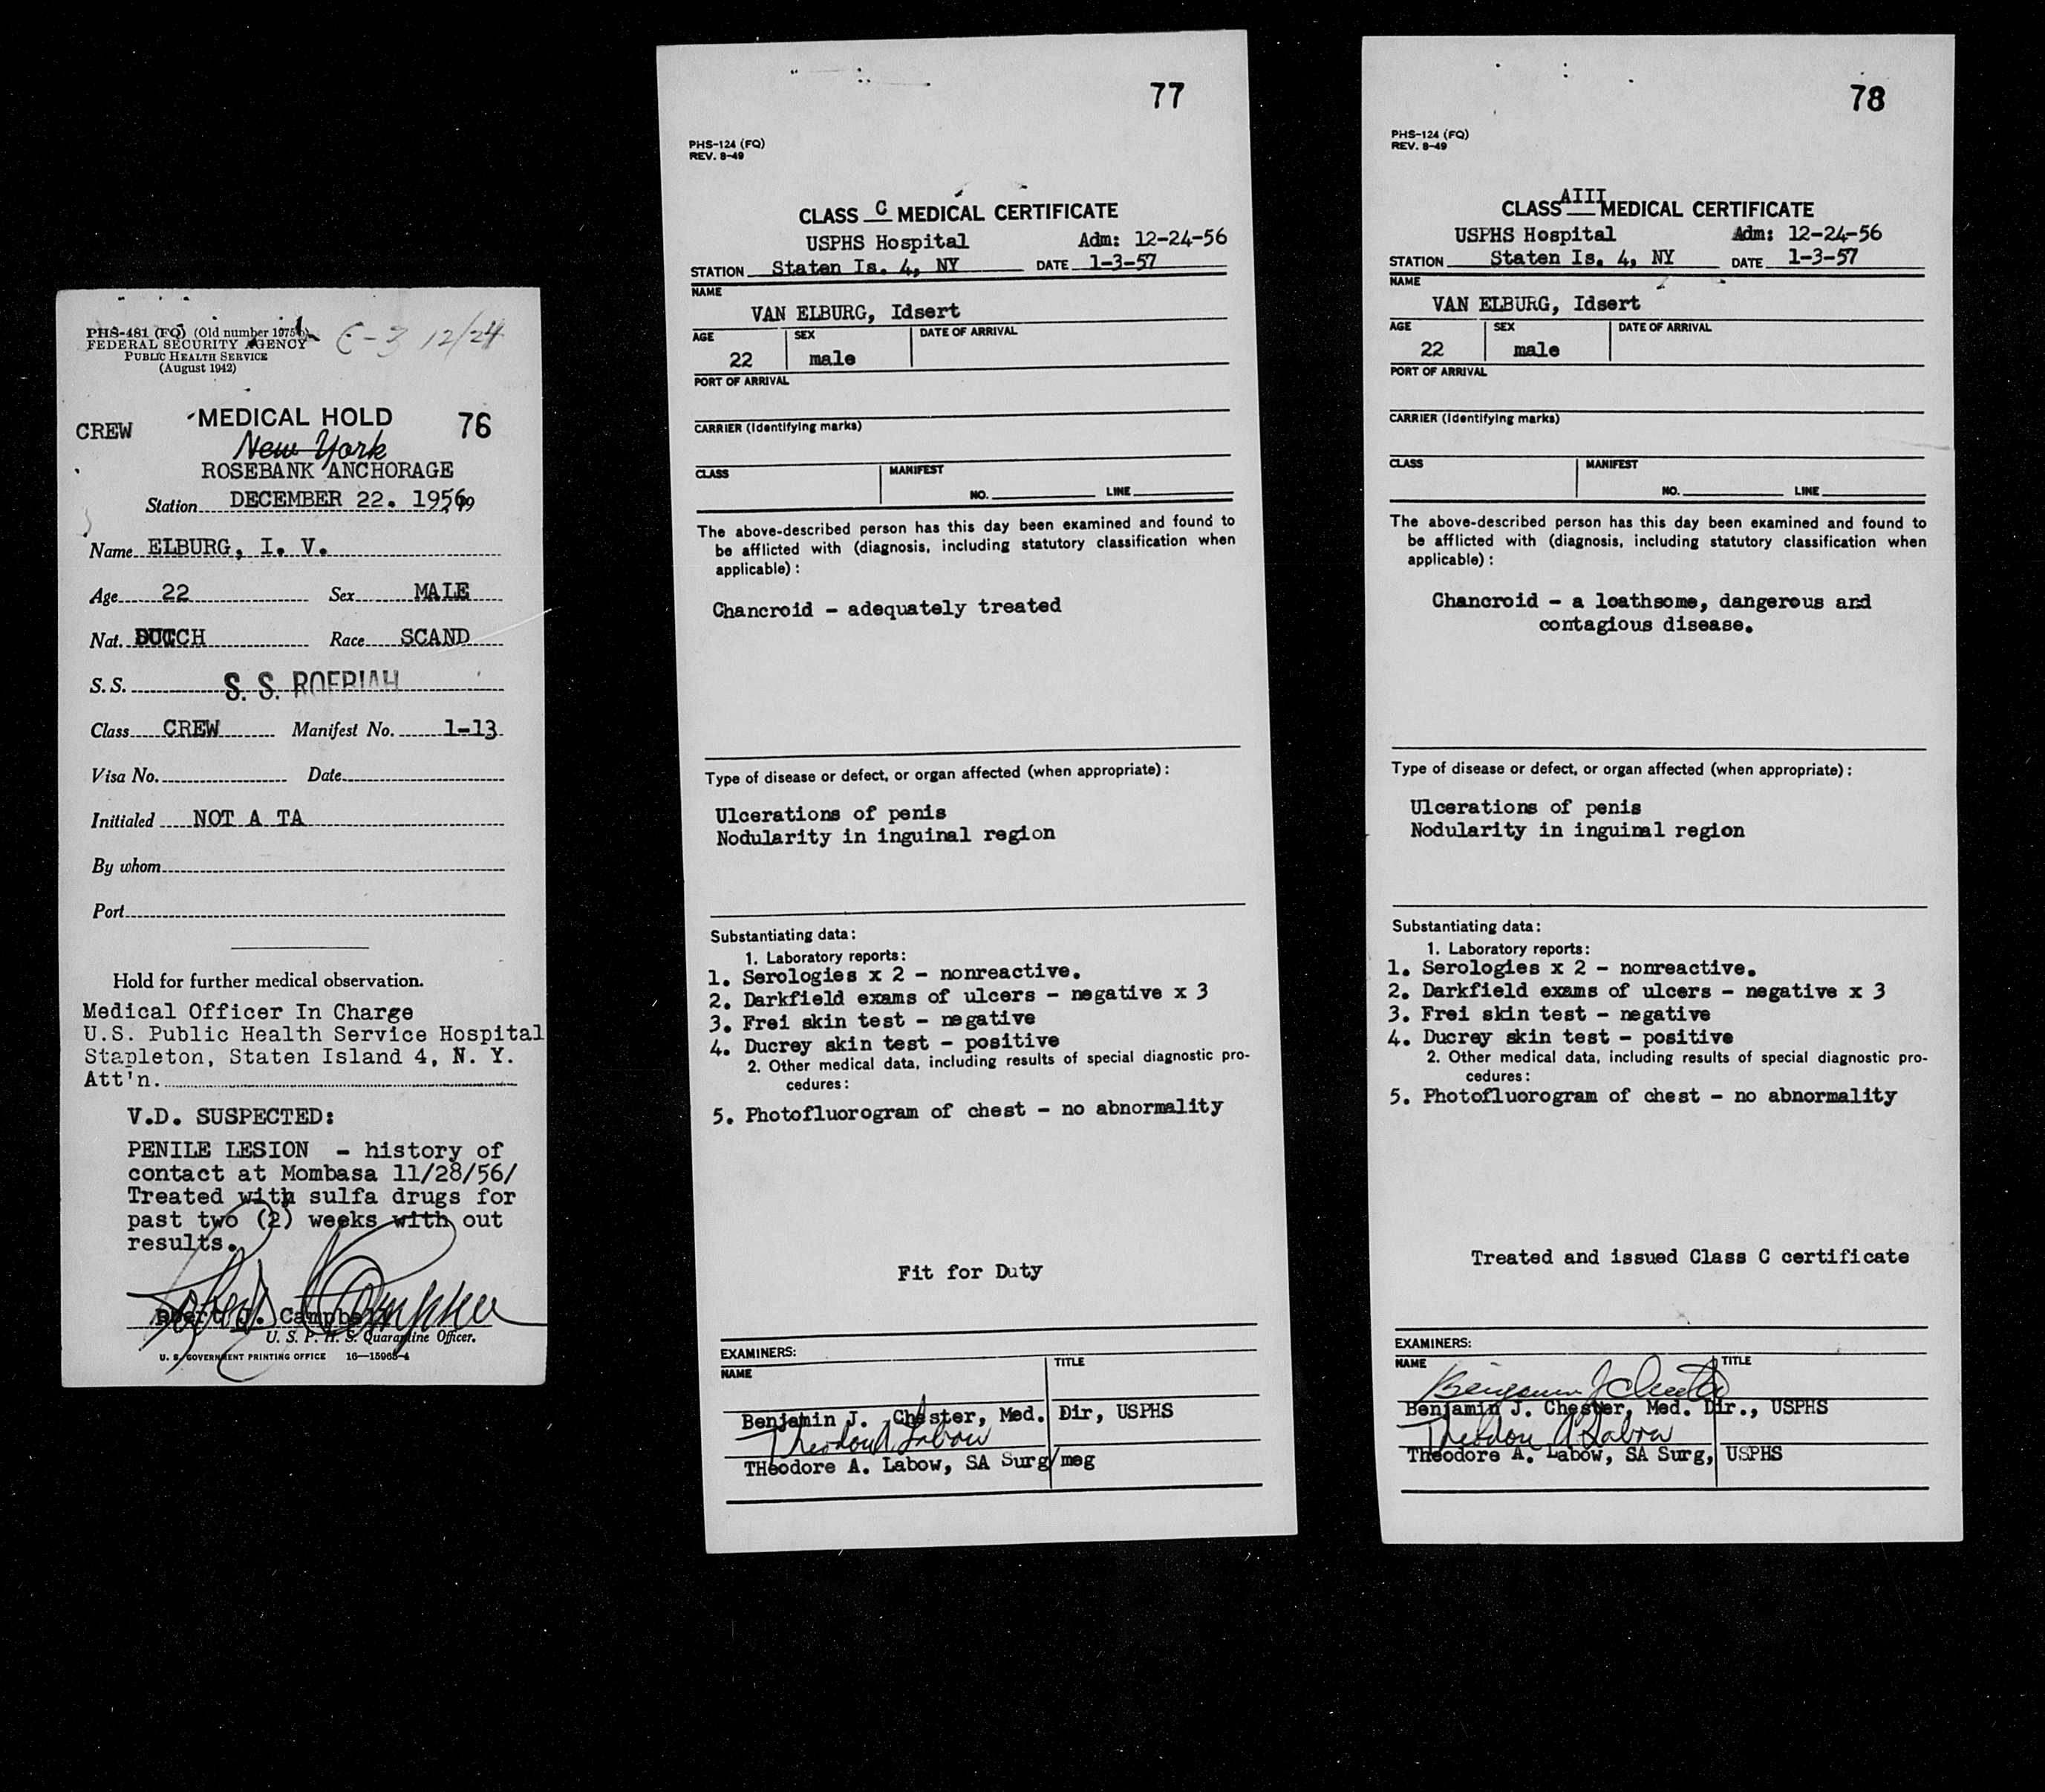 PHS-481 (FQ) (Old number 1975b)
FEDERAL SECURITY AGENCY
PUBLIC HEALTH SERVICE
(August 1942)
C-3 12/24
MEDICAL HOLD
CREW
76
New York
ROSEBANK ANCHORAGE
Station DECEMBER 22. 1956
Name ELBURG, I. V.
Age 22 Sex MALE
Nat. DUTCH Race SCAND
S.S. S. S. ROEBIAH
Class CREW Manifest No. 1-13
Visa No. Date
Initialed NOT A TA
By whom
Port
Hold for further medical observation.
Medical Officer In Charge
U.S. Public Health Service Hospital
Stapleton, Staten Island 4, N. Y.
Att'n.
V.D. SUSPECTED:
PENILE LESION - history of
contact at Mombasa 11/28/56/
Treated with sulfa drugs for
past two (2) weeks with out
results.
J. Campbe
U. S. P. H. S. Quarantine Officer.
U. S. GOVERNMENT PRINTING OFFICE 16—15965-4
77
PHS-124 (FQ)
REV. 8-49
CLASS C MEDICAL CERTIFICATE
USPHS Hospital Adm: 12-24-56
STATION Staten Is. 4, NY DATE 1-3-57
NAME
VAN ELBURG, Idsert
AGE SEX DATE OF ARRIVAL
22 male
PORT OF ARRIVAL
CARRIER (Identifying marks)
CLASS MANIFEST
NO. LINE
The above-described person has this day been examined and found to
be afflicted with (diagnosis, including statutory classification when
applicable):
Chancroid - adequately treated
Type of disease or defect, or organ affected (when appropriate):
Ulcerations of penis
Nodularity in inguinal region
Substantiating data:
1. Laboratory reports:
1. Serologies x 2 - nonreactive.
2. Darkfield exams of ulcers - negative x 3
3. Frei skin test - negative
4. Ducrey skin test - positive
2. Other medical data, including results of special diagnostic pro-
cedures:
5. Photofluorogram of chest - no abnormality
Fit for Duty
EXAMINERS:
NAME TITLE
Benjamin J. Chester, Med. Dir, USPHS
Theodore A Labow
THeodore A. Labow, SA Surg/meg
78
PHS-124 (FQ)
REV. 8-49
CLASS AIII MEDICAL CERTIFICATE
USPHS Hospital Adm: 12-24-56
STATION Staten Is. 4, NY DATE 1-3-57
NAME
VAN ELBURG, Idsert
AGE SEX DATE OF ARRIVAL
22 male
PORT OF ARRIVAL
CARRIER (Identifying marks)
CLASS MANIFEST
NO. LINE
The above-described person has this day been examined and found to
be afflicted with (diagnosis, including statutory classification when
applicable):
Chancroid - a loathsome, dangerous and
contagious disease.
Type of disease or defect, or organ affected (when appropriate):
Ulcerations of penis
Nodularity in inguinal region
Substantiating data:
1. Laboratory reports:
1. Serologies x 2 - nonreactive.
2. Darkfield exams of ulcers - negative x 3
3. Frei skin test - negative
4. Ducrey skin test - positive
2. Other medical data, including results of special diagnostic pro-
cedures:
5. Photofluorogram of chest - no abnormality
Treated and issued Class C certificate
EXAMINERS:
NAME TITLE
Benjamin J Chester
Benjamin J. Chester, Med. Dir., USPHS
Theodore A Labow
Theodore A. Labow, SA Surg, USPHS